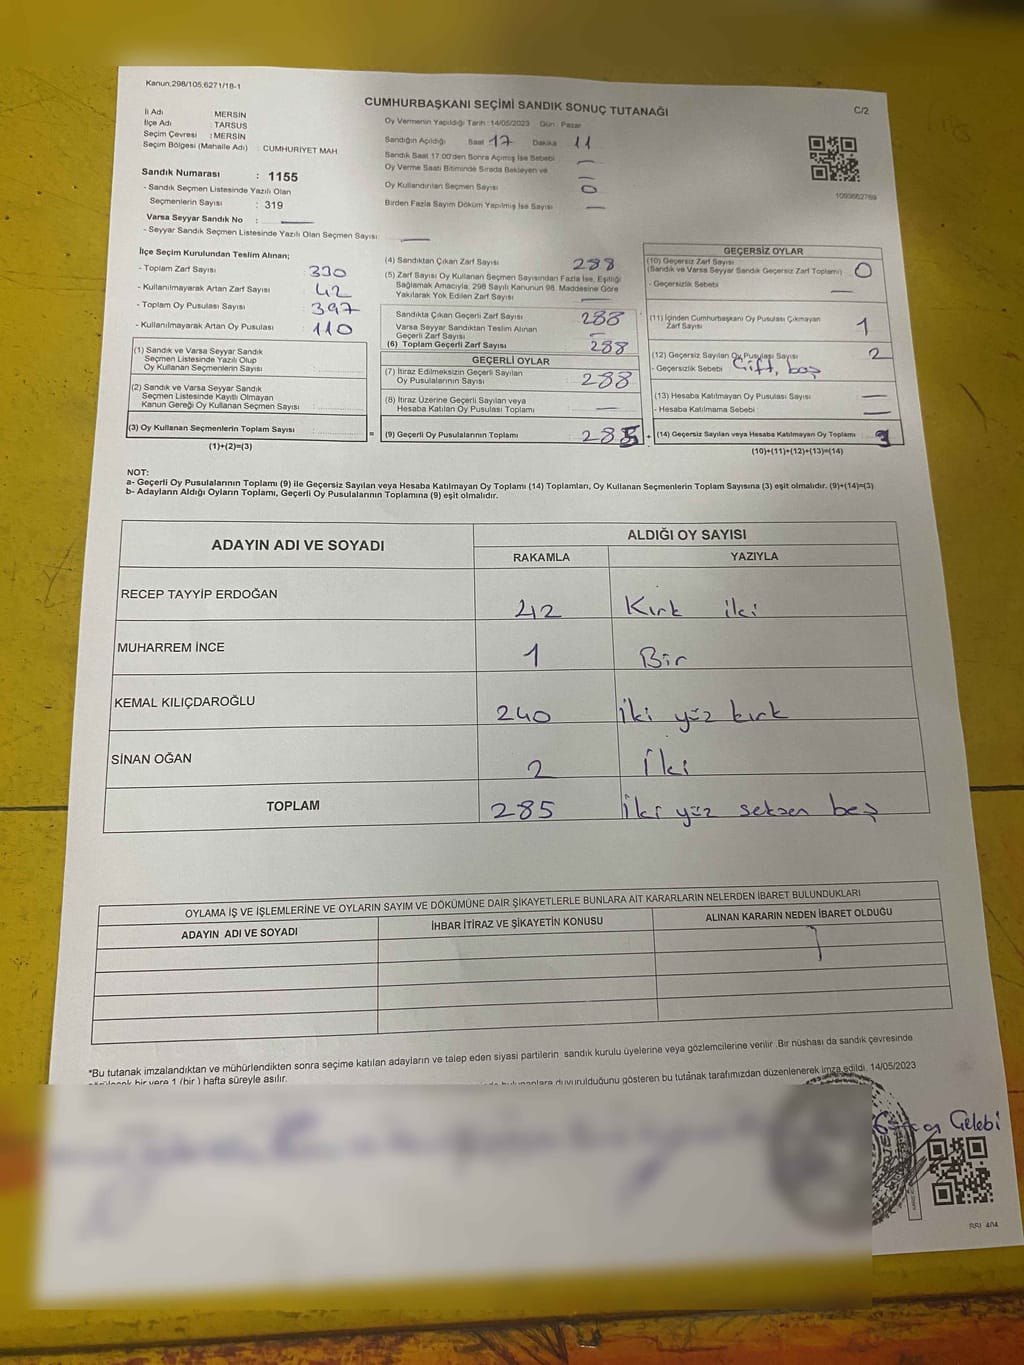 Kanun:298/105,6271/18-1
CUMHURBAŞKANI SEÇİMİ SANDIK SONUÇ TUTANAĞI
C/2
İl Adı : MERSİN
İlçe Adı : TARSUS
Seçim Çevresi : MERSİN
Seçim Bölgesi (Mahalle Adı) : CUMHURİYET MAH.
Sandık Numarası : 1155
- Sandık Seçmen Listesinde Yazılı Olan
Seçmenlerin Sayısı : 319
Varsa Seyyar Sandık No :
- Seyyar Sandık Seçmen Listesinde Yazılı Olan Seçmen Sayısı:
Oy Vermenin Yapıldığı Tarih :14/05/2023 Gün : Pazar
Sandığın Açıldığı Saat 17 Dakika 11
Sandık Saat 17.00'den Sonra Açılmış İse Sebebi
Oy Verme Saati Bitiminde Sırada Bekleyen ve
Oy Kullandırılan Seçmen Sayısı 0
Birden Fazla Sayım Döküm Yapılmış İse Sayısı —
1093662769
İlçe Seçim Kurulundan Teslim Alınan;
- Toplam Zarf Sayısı 330
- Kullanılmayarak Artan Zarf Sayısı 42
- Toplam Oy Pusulası Sayısı 397
- Kullanılmayarak Artan Oy Pusulası 110
(1) Sandık ve Varsa Seyyar Sandık
Seçmen Listesinde Yazılı Olup
Oy Kullanan Seçmenlerin Sayısı :
(2) Sandık ve Varsa Seyyar Sandık
Seçmen Listesinde Kayıtlı Olmayan
Kanun Gereği Oy Kullanan Seçmen Sayısı :
(3) Oy Kullanan Seçmenlerin Toplam Sayısı :
(1)+(2)=(3)
(4) Sandıktan Çıkan Zarf Sayısı 288
(5) Zarf Sayısı Oy Kullanan Seçmen Sayısından Fazla İse, Eşitliği
Sağlamak Amacıyla, 298 Sayılı Kanunun 98. Maddesine Göre
Yakılarak Yok Edilen Zarf Sayısı —
Sandıkta Çıkan Geçerli Zarf Sayısı 288
Varsa Seyyar Sandıktan Teslim Alınan
Geçerli Zarf Sayısı —
(6) Toplam Geçerli Zarf Sayısı 288
GEÇERLİ OYLAR
(7) İtiraz Edilmeksizin Geçerli Sayılan
Oy Pusulalarının Sayısı : 288
(8) İtiraz Üzerine Geçerli Sayılan veya
Hesaba Katılan Oy Pusulası Toplamı : —
= (9) Geçerli Oy Pusulalarının Toplamı : 285 +
GEÇERSİZ OYLAR
(10) Geçersiz Zarf Sayısı
(Sandık ve Varsa Seyyar Sandık Geçersiz Zarf Toplamı) 0
- Geçersizlik Sebebi —
(11) İçinden Cumhurbaşkanı Oy Pusulası Çıkmayan
Zarf Sayısı 1
(12) Geçersiz Sayılan Oy Pusulası Sayısı 2
- Geçersizlik Sebebi Çift, boş
(13) Hesaba Katılmayan Oy Pusulası Sayısı —
- Hesaba Katılmama Sebebi —
(14) Geçersiz Sayılan veya Hesaba Katılmayan Oy Toplamı : 3
(10)+(11)+(12)+(13)=(14)
NOT:
a- Geçerli Oy Pusulalarının Toplamı (9) ile Geçersiz Sayılan veya Hesaba Katılmayan Oy Toplamı (14) Toplamları, Oy Kullanan Seçmenlerin Toplam Sayısına (3) eşit olmalıdır. (9)+(14)=(3)
b- Adayların Aldığı Oyların Toplamı, Geçerli Oy Pusulalarının Toplamına (9) eşit olmalıdır.
ADAYIN ADI VE SOYADI
ALDIĞI OY SAYISI
RAKAMLA YAZIYLA
RECEP TAYYİP ERDOĞAN 42 Kırk iki
MUHARREM İNCE 1 Bir
KEMAL KILIÇDAROĞLU 240 İki yüz kırk
SİNAN OĞAN 2 İki
TOPLAM 285 İki yüz seksen beş
OYLAMA İŞ VE İŞLEMLERİNE VE OYLARIN SAYIM VE DÖKÜMÜNE DAİR ŞİKAYETLERLE BUNLARA AİT KARARLARIN NELERDEN İBARET BULUNDUKLARI
ADAYIN ADI VE SOYADI İHBAR İTİRAZ VE ŞİKAYETİN KONUSU ALINAN KARARIN NEDEN İBARET OLDUĞU
*Bu tutanak imzalandıktan ve mühürlendikten sonra seçime katılan adayların ve talep eden siyasi partilerin sandık kurulu üyelerine veya gözlemcilerine verilir .Bir nüshası da sandık çevresinde
bir yere 1 (bir ) hafta süreyle asılır.
duyurulduğunu gösteren bu tutanak tarafımızdan düzenlenerek imza edildi. 14/05/2023
Çelebi